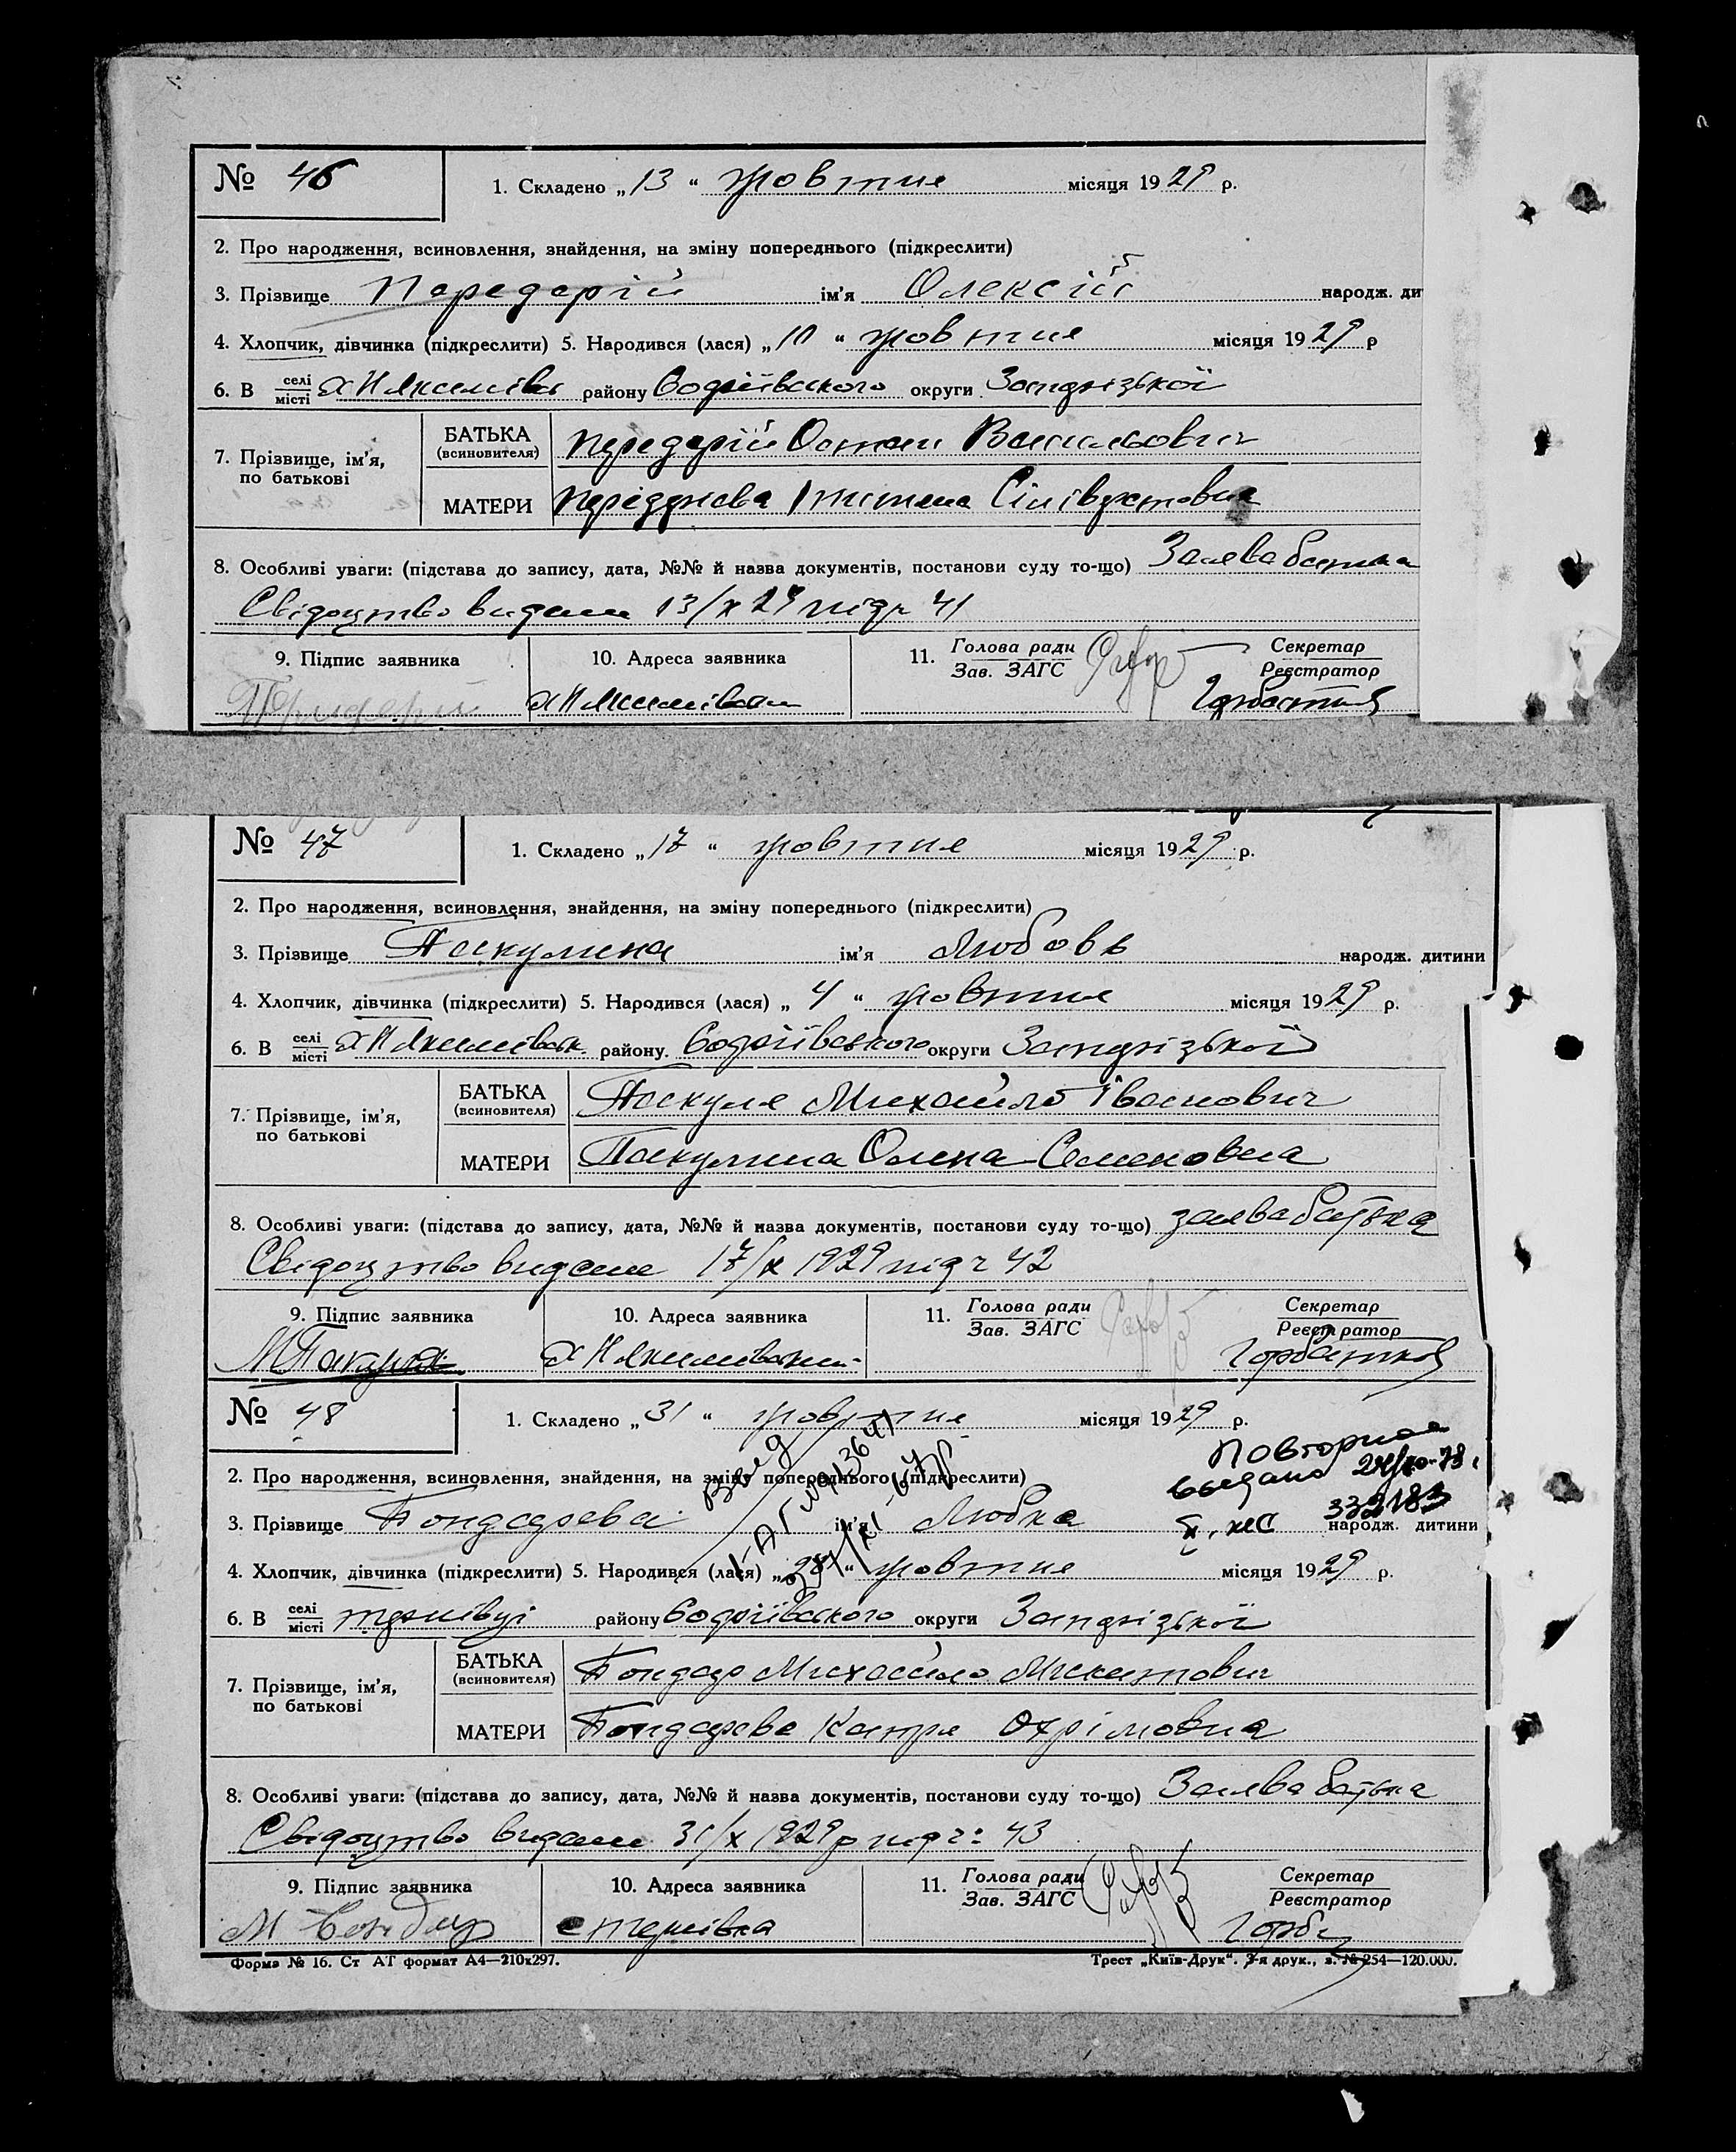 № 46 1. Складено „13“ жовтня місяця 1929 р.
2. Про народження, всиновлення, знайдення, на зміну попереднього (підкреслити)
3. Прізвище Передерій ім’я Олексій народж. ди
4. Хлопчик, дівчинка (підкреслити) 5. Народився (лася) „10“ жовтня місяця 1929 р
6. В селі місті району округи Запорізької
7. Прізвище, ім’я, по батькові
БАТЬКА (всиновителя) Передерій Остап Васильович
МАТЕРИ
8. Особливі уваги: (підстава до запису, дата, №№ й назва документів, постанови суду то-що) Заява батька
Свідоцтво видане 13/X 29 під ч 41
9. Підпис заявника 10. Адреса заявника 11. Голова ради Зав. ЗАГС Секретар Реєстратор
№ 47 1. Складено „17“ жовтня місяця 1929 р.
2. Про народження, всиновлення, знайдення, на зміну попереднього (підкреслити)
3. Прізвище Пакулина ім’я Любовь народж. дитини
4. Хлопчик, дівчинка (підкреслити) 5. Народився (лася) „4“ жовтня місяця 1929 р.
6. В селі місті району. округи Запорізької
7. Прізвище, ім’я, по батькові
БАТЬКА (всиновителя) Пакуля Михайло Іванович
МАТЕРИ Пакулина Олена Семеновна
8. Особливі уваги: (підстава до запису, дата, №№ й назва документів, постанови суду то-що) заява батька
Свідоцтво видане 17/X 1929 під ч 42
9. Підпис заявника 10. Адреса заявника 11. Голова ради Зав. ЗАГС Секретар Реєстратор
Горбатков
№ 48 1. Складено „31“ жовтня місяця 1929 р.
Повторное
выдано 24/10-78 г
332183
2. Про народження, всиновлення, знайдення, на зміну попереднього (підкреслити)
3. Прізвище Бондарева ім’я Любка народж. дитини
4. Хлопчик, дівчинка (підкреслити) 5. Народився (лася) „28“ жовтня місяця 1929 р.
6. В селі місті району округи Запорізької
7. Прізвище, ім’я, по батькові
БАТЬКА (всиновителя) Бондар Михайло Микитович
МАТЕРИ Бондарева Катря Охрімовна
8. Особливі уваги: (підстава до запису, дата, №№ й назва документів, постанови суду то-що) Заява батька
Свідоцтво видане 31/X 1929 р під ч: 43
9. Підпис заявника 10. Адреса заявника 11. Голова ради Зав. ЗАГС Секретар Реєстратор
М Бондар
Форма № 16. Ст АТ формат А4—210x297. Трест „Київ-Друк“. 3-я друк., з. № 254—120.000.